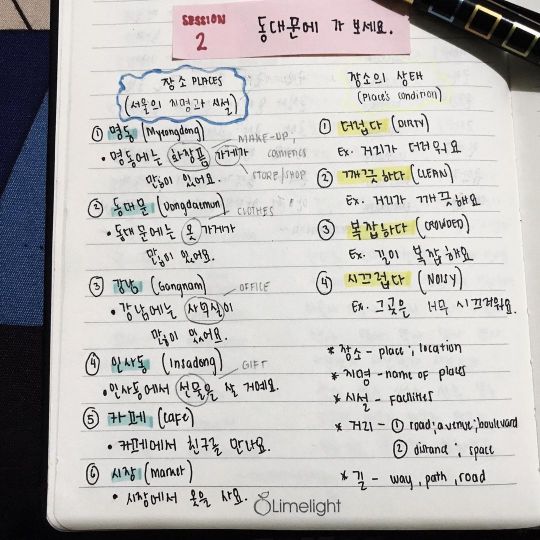 SESSION 2
동대문에 가 보세요.
장소 PLACES
(서울의 지명과 시설)
① 명동 (Myeongdong)
• 명동에는 화장품 가게가
많이 있어요.
MAKE-UP
COSMETICS
STORE/SHOP
② 동대문 (Dongdaemun)
• 동대문에는 옷 가게가
많이 있어요.
CLOTHES
③ 강남 (Gangnam)
• 강남에는 사무실이
많이 있어요.
OFFICE
④ 인사동 (Insadong)
• 인사동에서 선물을 살 거예요.
GIFT
⑤ 카페 (cafe)
• 카페에서 친구를 만나요.
⑥ 시장 (market)
• 시장에서 옷을 사요.
장소의 상태
(Place's condition)
① 더럽다 (DIRTY)
Ex. 거리가 더러워요
② 깨끗하다 (CLEAN)
Ex. 거리가 깨끗해요
③ 복잡하다 (CROWDED)
Ex. 길이 복잡해요
④ 시끄럽다 (NOISY)
Ex. 그곳은 너무 시끄러워요.
* 장소 - place; location
* 지명 - name of places
* 시설 - facilities
* 거리 - ① road; avenue; boulevard
② distance; space
* 길 - way, path, road
Limelight